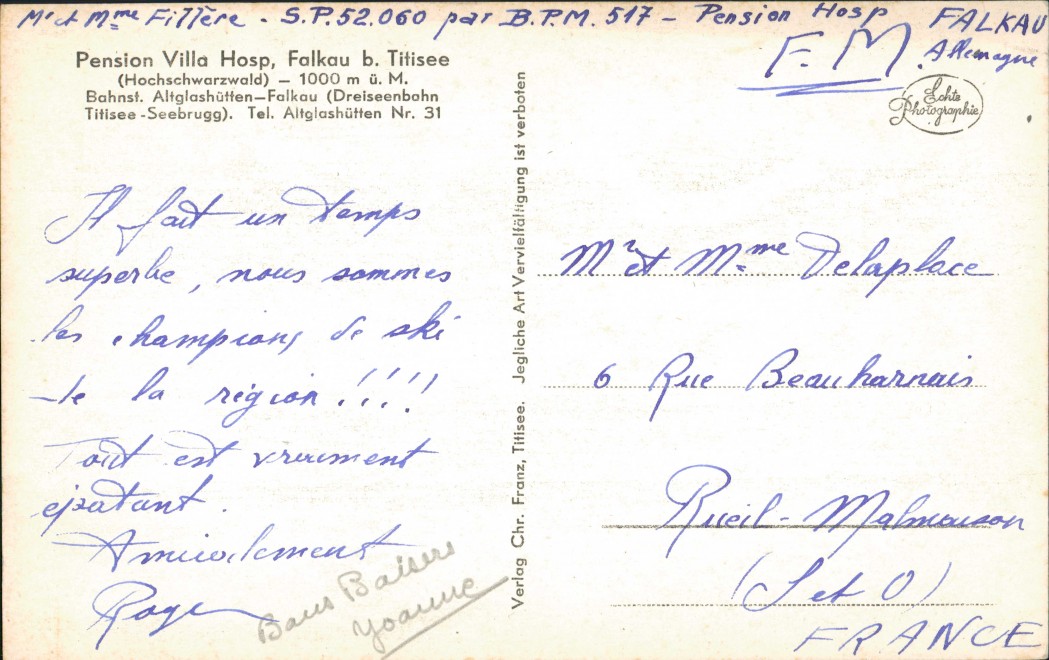 Mr et Mme Fillère - S.P. 52.060 par B.P.M. 517 - Pension Hosp FALKAU
Allemagne
F. M.
Pension Villa Hosp, Falkau b. Titisee
(Hochschwarzwald) — 1000 m ü. M.
Bahnst. Altglashütten—Falkau (Dreiseenbahn
Titisee-Seebrugg). Tel. Altglashütten Nr. 31
Echte
Photographie
Il fait un temps
superbe, nous sommes
les champions de ski
de la région !!!!
Tout est vraiment
épatant.
Amicalement
Roger
Bons Baisers
Yoanne
Verlag Chr. Franz, Titisee. Jegliche Art Vervielfältigung ist verboten
Mr et Mme Delaplace
6 Rue Beauharnais
Rueil-Malmaison
(S et O)
FRANCE